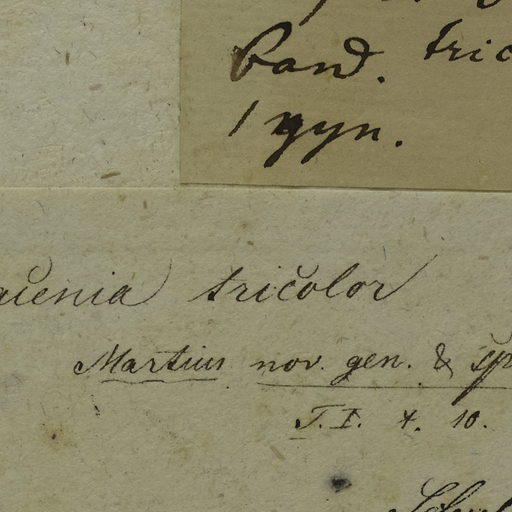 Pand. tric
1 gyn.
acenia tricolor
Martius nov. gen. & sp
T. I. t. 10.